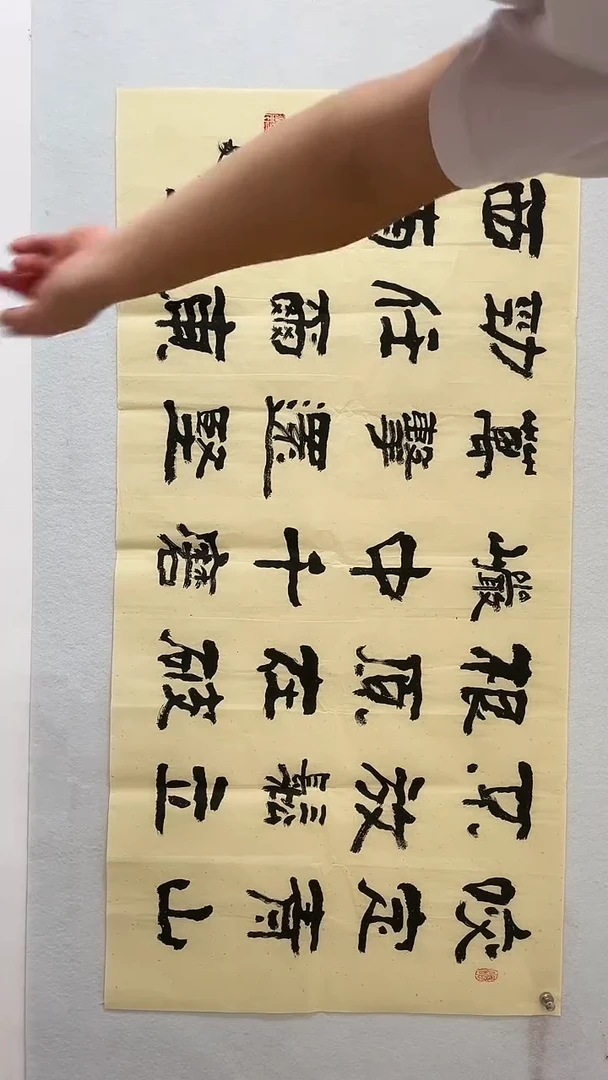 咬定青山
不放鬆立
根原在破
巖中千磨
萬擊還堅
勁任爾東
西南